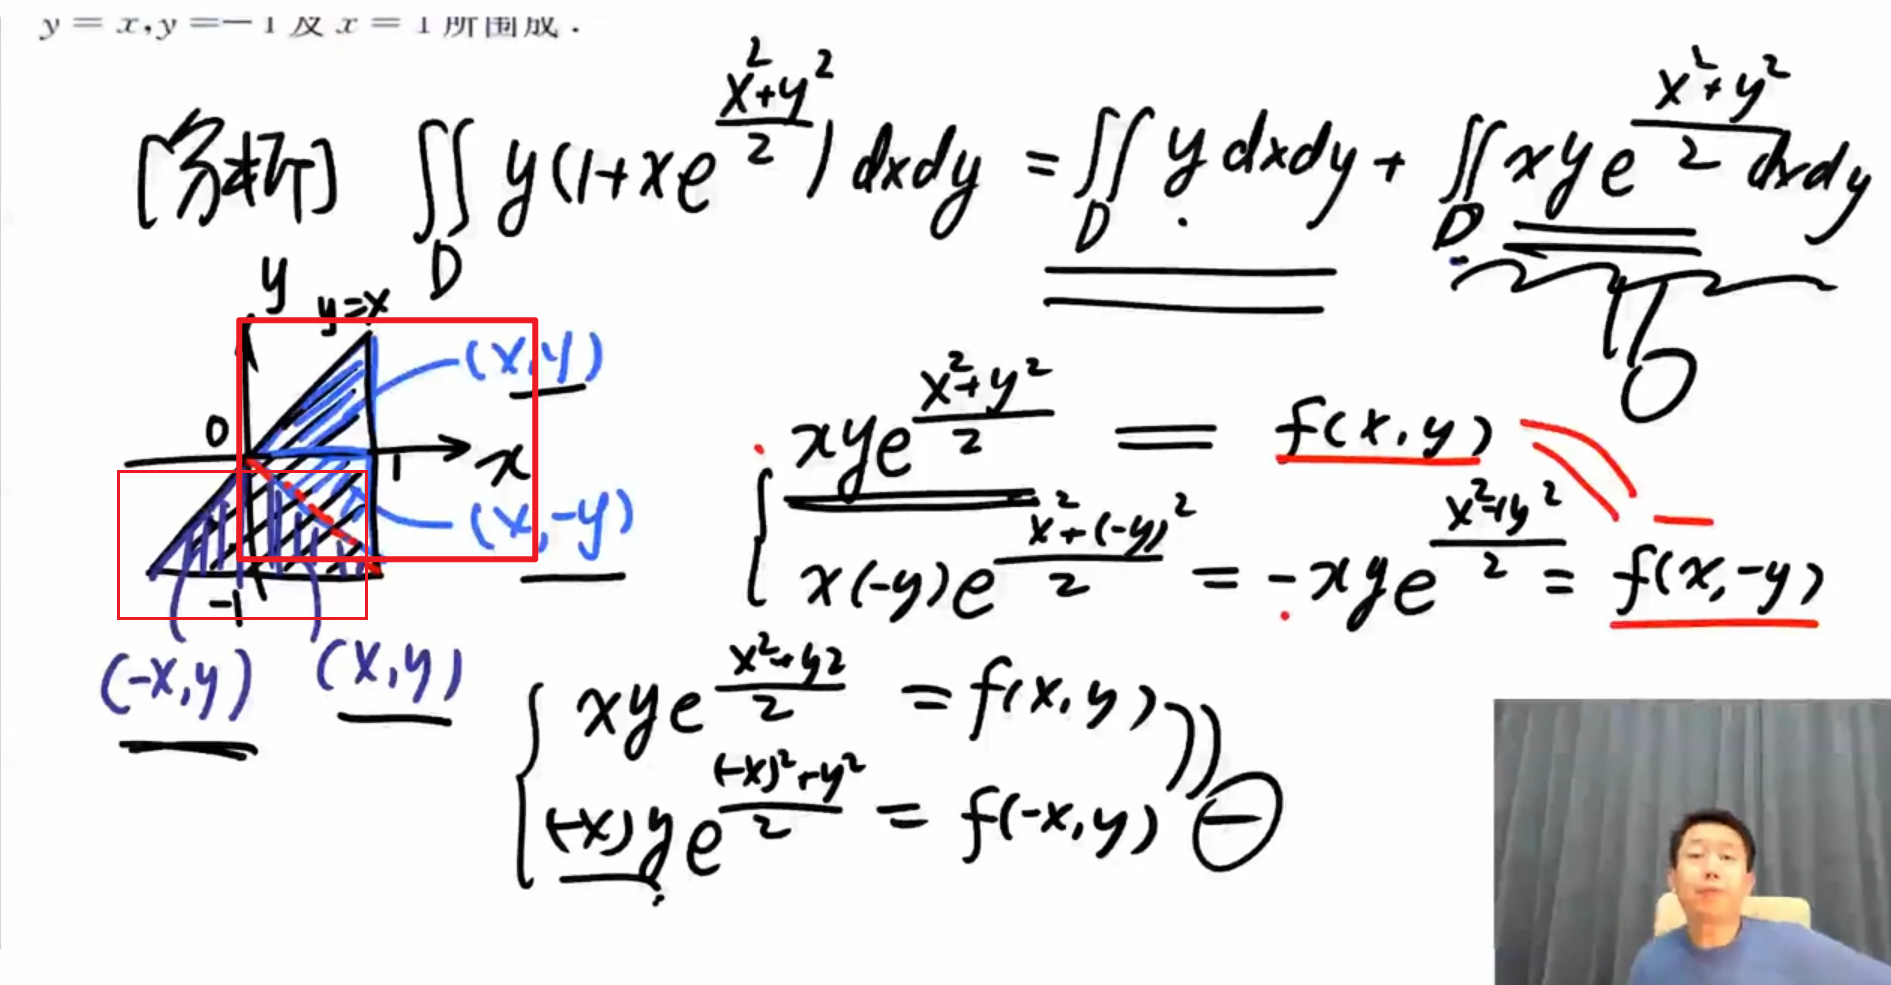 y = x, y = -1 及 x = 1 所围成.
[分析] ∬_D y(1+xe^{\frac{x^2+y^2}{2}}) dxdy = ∬_D y dxdy + ∬_D xye^{\frac{x^2+y^2}{2}} dxdy
0
y
y=x
(x,y)
0
x
1
(x,-y)
-1
(-x,y)
(x,y)
xye^{\frac{x^2+y^2}{2}} = f(x,y)
x(-y)e^{\frac{x^2+(-y)^2}{2}} = -xye^{\frac{x^2+y^2}{2}} = f(x,-y)
xye^{\frac{x^2+y^2}{2}} = f(x,y)
(-x)ye^{\frac{(-x)^2+y^2}{2}} = f(-x,y)
-